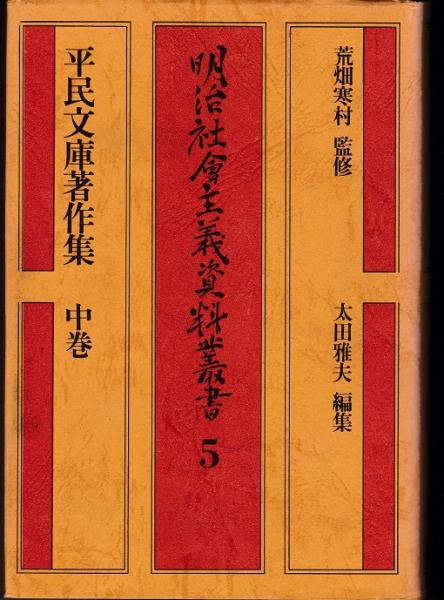 荒畑寒村 監修
太田雅夫 編集
明治社會主義資料叢書 5
平民文庫著作集 中巻